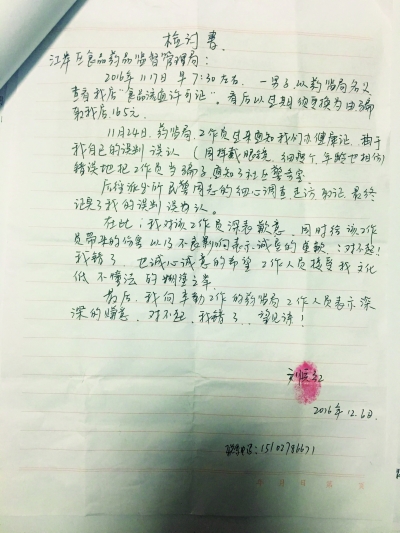 检讨书
江岸区食品药品监督管理局:
2016年11月17日早7:30左右,一男子以药监局名义
查看我店"食品流通许可证"。看后以过期须更换为由骗
取我店165元。
11月24日,药监局工作员过来通知我们办健康证,由于
我自己的误判误认(同样戴眼镜,细瘦个,年龄也相仿)
错误地把工作员当骗子通知了社区警务室。
后经派出所民警同志的细心调查走访取证,最终
证实了我的误判误为认。
在此:我对该工作员深表歉意,同时给该工作
员带来的伤害以及不良影响表示诚爱的道歉:对不起!
我错了,也诚心诚意的希望工作人员接受我文化
低不懂法的糊涂之举。
最后,我向辛勤工作的药监局工作人员表示深
深的歉意,对不起,我错了,望见谅!
刘 红
2016年12.6日
联系电话:15102786671